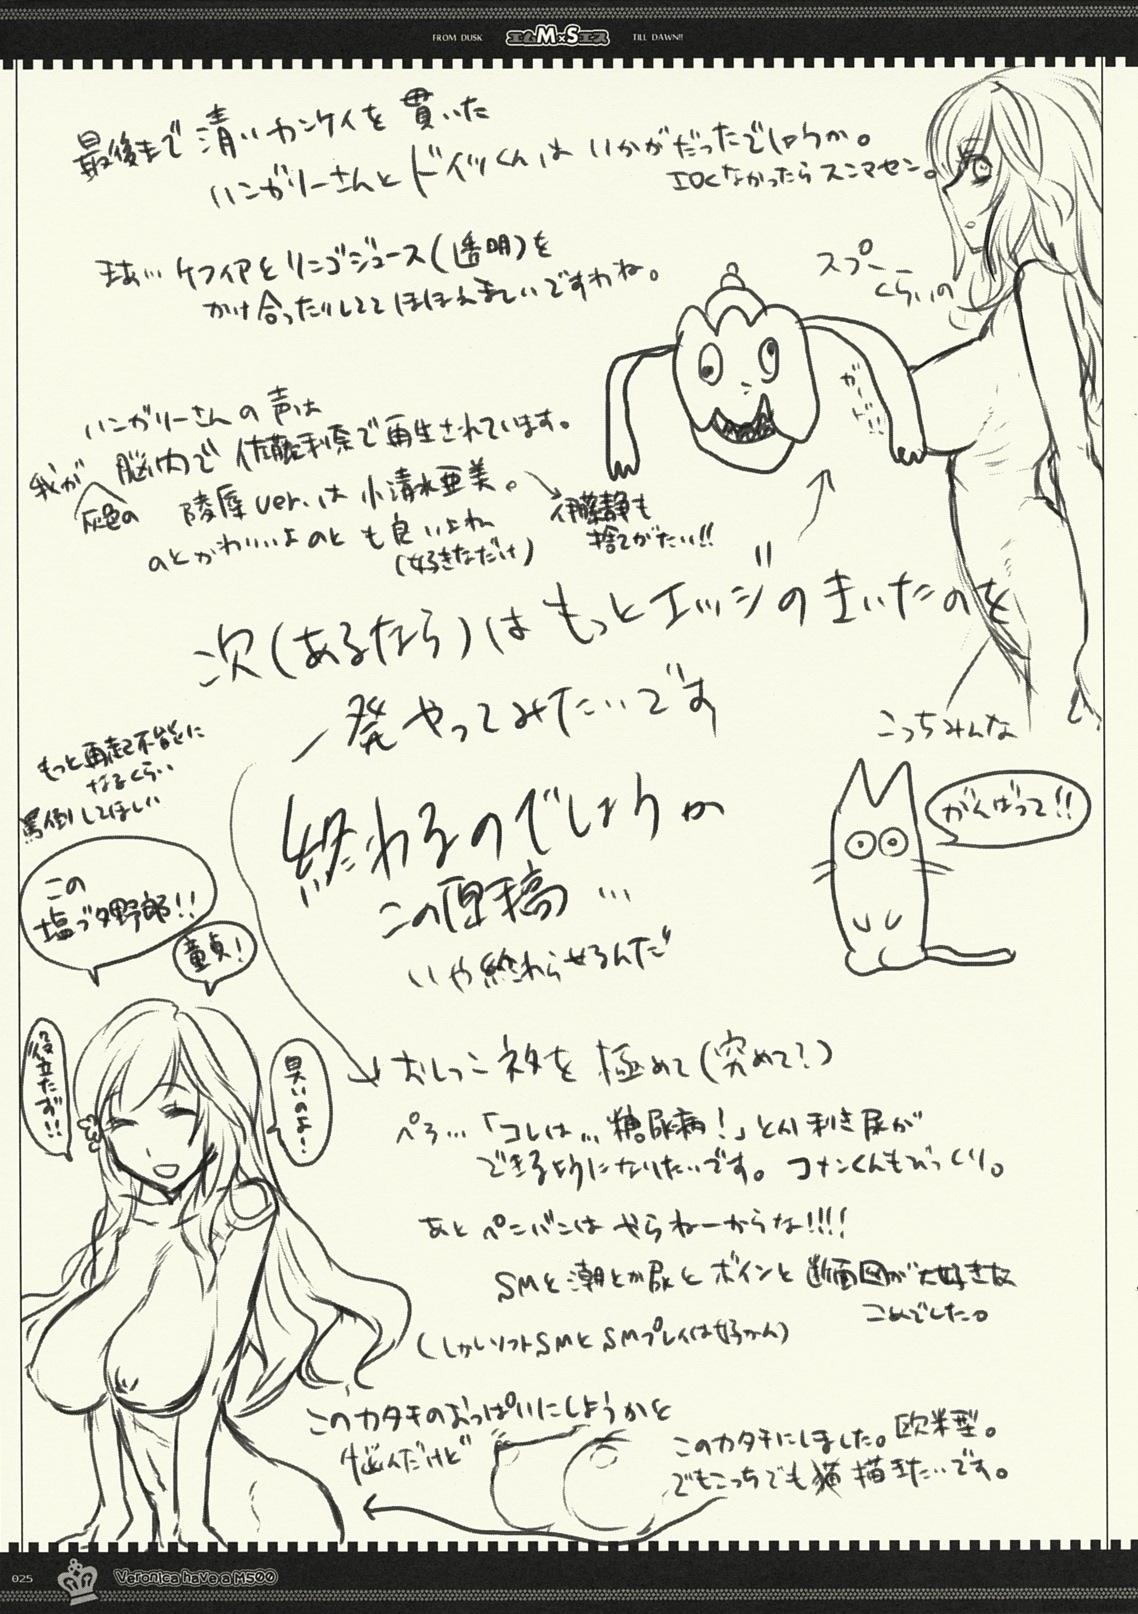 FROM DUSK
エムM×Sエス
TILL DAWN!!
最後まで清いカンケイを貫いた
ハンガリーさんとドイツくんは いかがだったでしょうか。
エロくなかったらスンマセン。
まあ… ケフィアとリンゴジュース(透明)を
かけ合ったりしてて ほほえましいですわね。
スプー
くらいの
ハンガリーさんの声は
我が脳内で 佐藤利奈で再生されています。
灰色の
陵辱ver.は 小清水亜美。
伊藤静も
捨てがたい!!
のとかわいいよのと も良いよね
(好きなだけ)
次(あるなら)は もっとエッジのきいたのを
一発やってみたいです
こっちみんな
がんばって!!
もっと再起不能に
なるくらい
罵倒してほしい
この
塩ブタ野郎!!
童貞!
役立たず!!
臭いのよ!
終わるのでしょうか
この原稿…
いや 終わらせるんだ
おしっこネタを 極めて(究めて?)
ペろ…「コレは… 糖尿病!」とか 利き尿が
できるようになりたいです。コナンくんもびっくり。
あと ペニバンは やらねーからな!!!!
SMと潮とか尿と ボインと 断面図が大好きな
こめでした。
(しかしソフトSMと SMプレイは好かん)
このカタチのおっぱいにしようかと
悩んだけど
このカタチにしました。欧米型。
でもこっちでも猫描きたいです。
025
Veronica have a M500